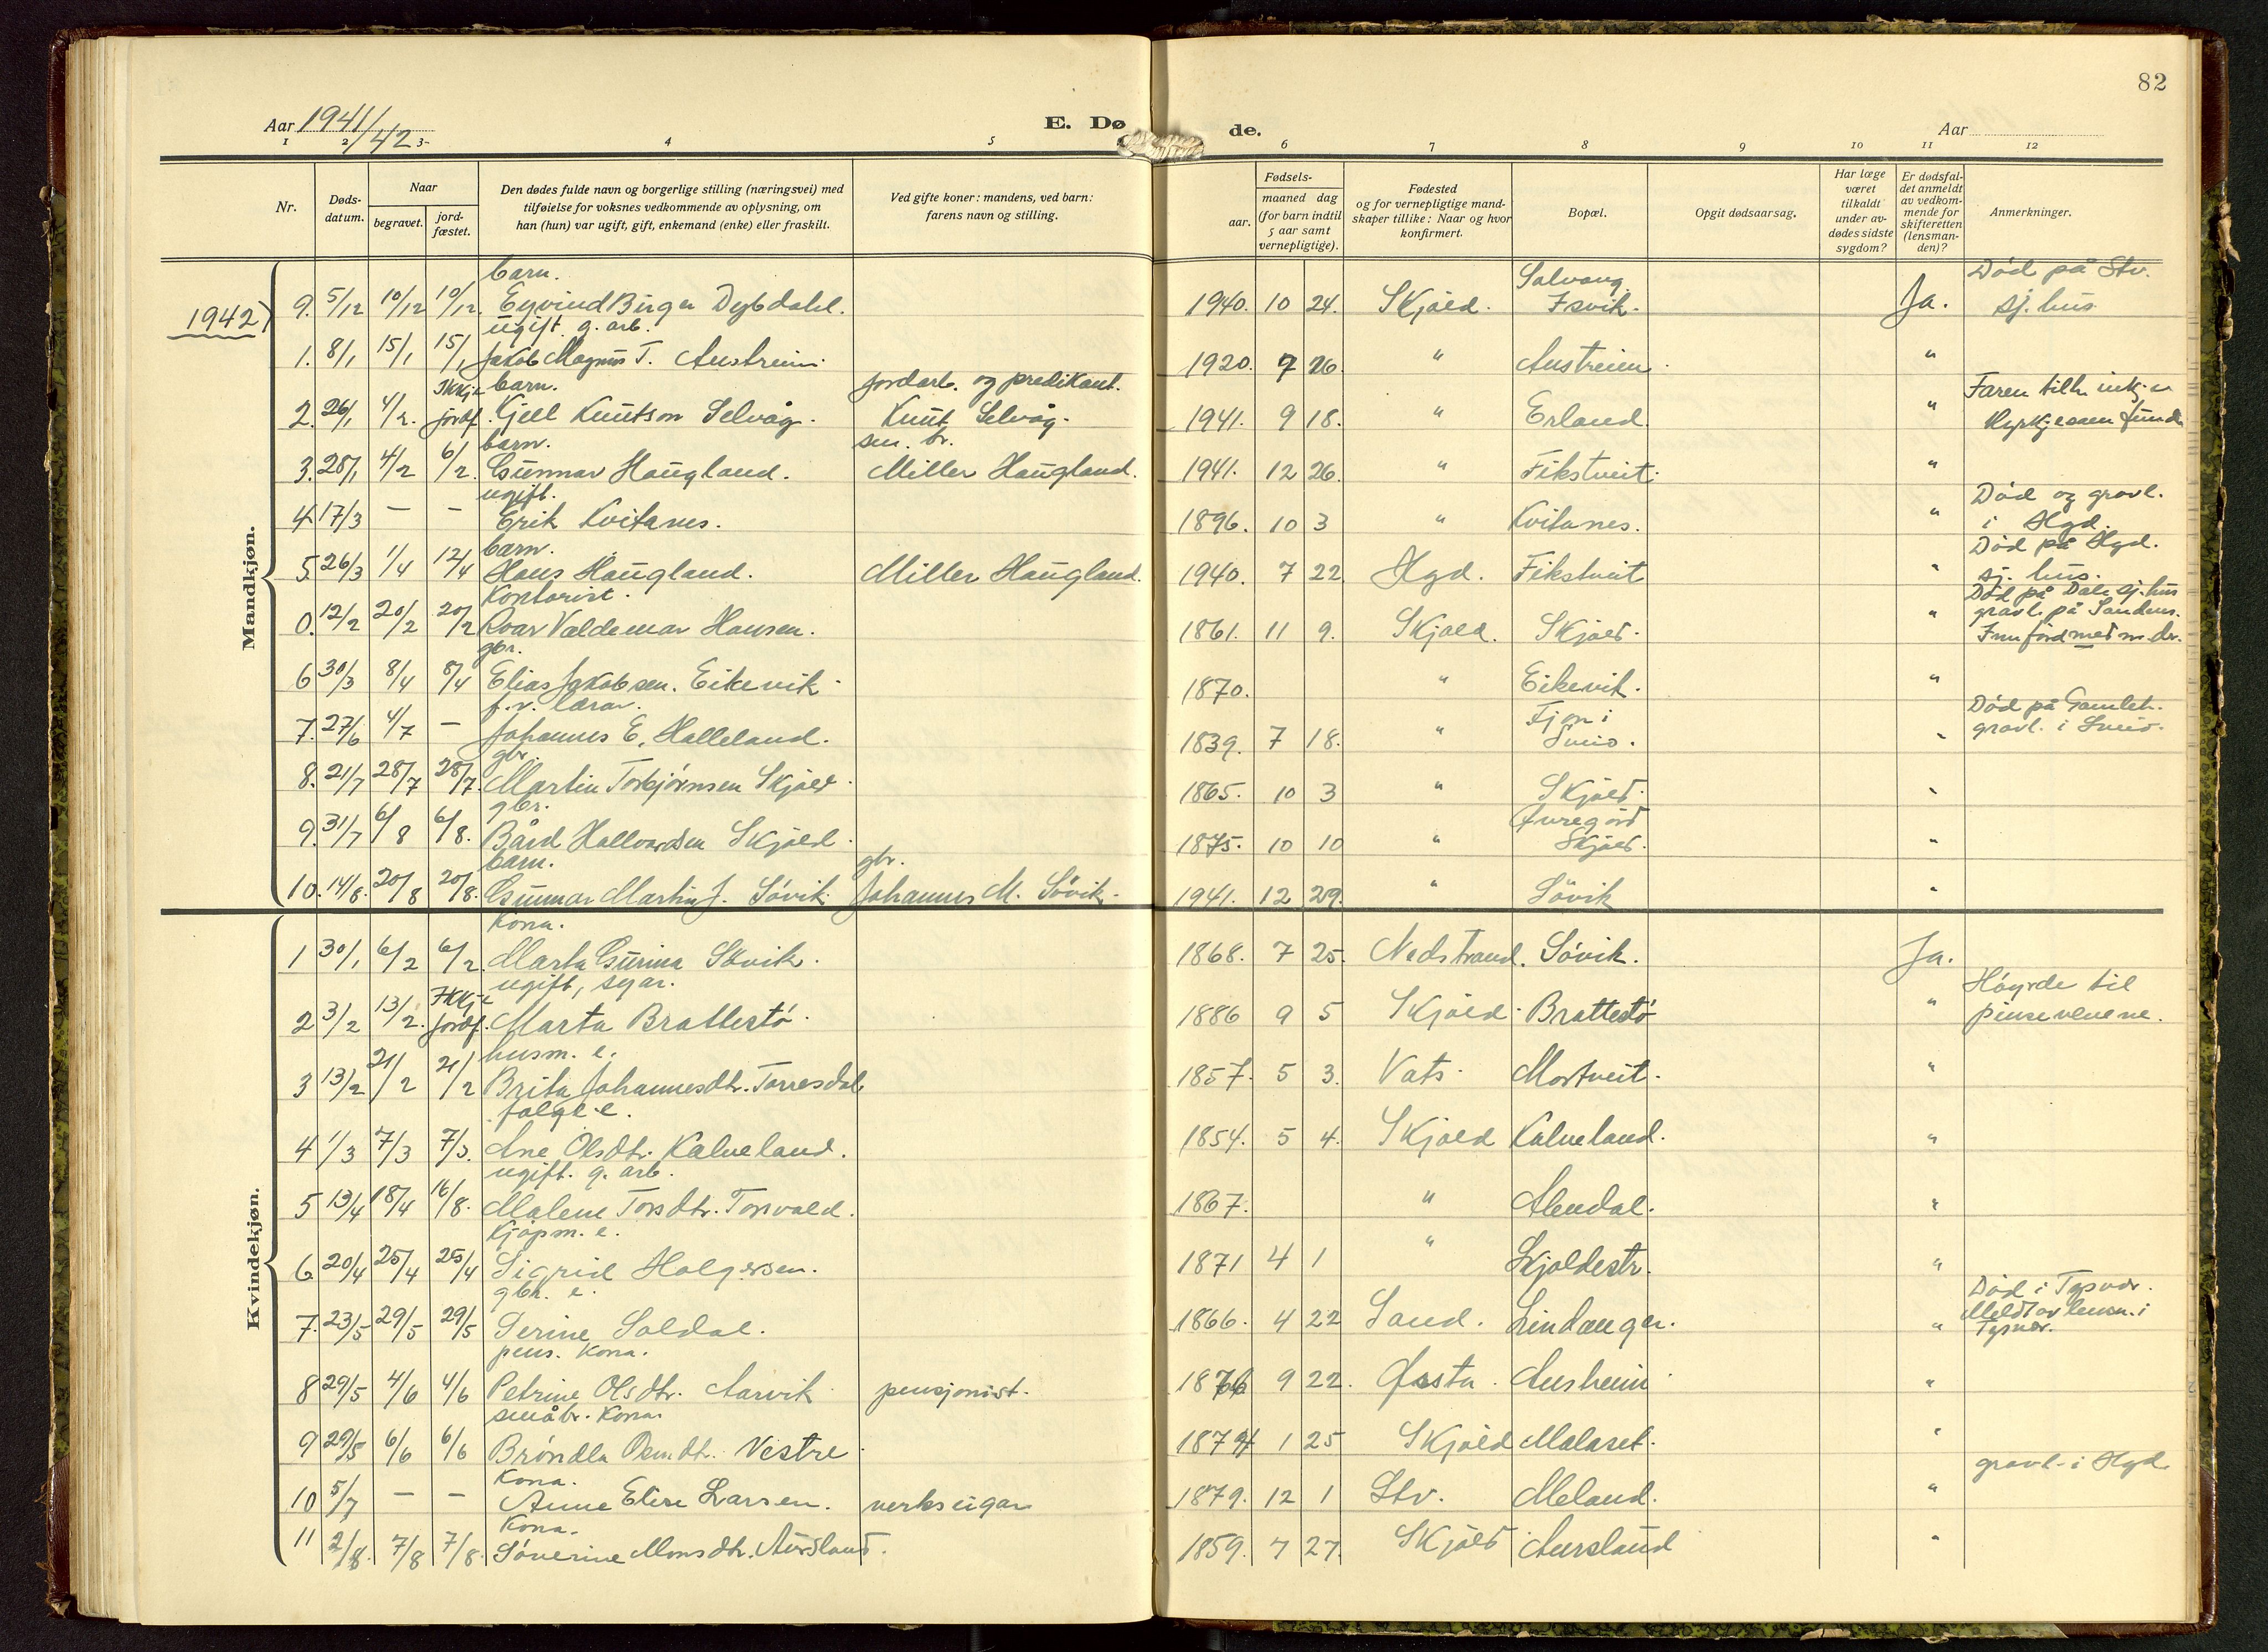 82
Aar 1941/42
E. Dø de.
Aar
1 2 3 4 5 6 7 8 9 10 11 12
Nr.
Døds-datum.
Naar
begravet.
jord-fæstet.
Den dødes fulde navn og borgerlige stilling (næringsvei) med
tilføielse for voksnes vedkommende av oplysning, om
han (hun) var ugift, gift, enkemand (enke) eller fraskilt.
Ved gifte koner: mandens, ved barn:
farens navn og stilling.
Fødsels-
aar. maaned dag
(for barn indtil
5 aar samt
vernepligtige).
Fødested
og for vernepligtige mand-
skaper tillike: Naar og hvor
konfirmert.
Bopæl.
Opgit dødsaarsag.
Har læge
været
tilkaldt
under av-
dødes sidste
sygdom?
Er dødsfal-
det anmeldt
av vedkom-
mende for
skifteretten
(lensman-
den)?
Anmerkninger.
Mandkjøn.
barn. Solvang Død på Stv.
9. 5/12 10/12 10/12. Eyvind Birger Dybdahl. 1940. 10 24. Skjold. Isvik. Ja. sj. hus
1942)
ugift. g. arb.
1. 8/1 15/1 15/1 Jakob Magnus T. Austreim. 1920. 7 26. " Austreim. "
Ikkje barn. jordarb. og predikant. Faren tilh. ikkje
2. 26/1 4/2. jordf. Kjell Knutson Selvåg. Knut Selvåg. 1941. 9 18. " Erland. " kyrkjesamfund
barn. sm. br.
3. 28/1 4/2 6/2. Gunnar Haugland. Miller Haugland. 1941. 12 26. " Fikstveit. "
ugift. Død og gravl.
4 17/3 – – Erik Kvitanes. 1896. 10 3 " Kvitanes. " i Hgd.
barn. Død på Hgd.
5. 26/3 1/4 12/4 Hans Haugland. Miller Haugland. 1940. 7 22 Hgd. Fikstveit " sj. hus.
Kontorist. Død på Dale sj.hus
0. 12/2 20/2 20/2 Roar Valdemar Hansen. 1861. 11 9. Skjold. Skjold. " gravl. på Sandnes.
Innførd med m. dr.
gbr.
6 30/3 8/4 8/4 Elias Jakobsen. Eikevik. 1870. " Eikevik. "
f.v. lærar. Fjon i Død på Gamleh.
7. 27/6 4/7 – Johannes E. Halleland. 1839. 7 18. " Sveio. " gravl. i Sveio.
gbr.
8. 21/7 28/7 28/7. Martin Torbjørnsen Skjold. 1865. 10 3 " Skjold. "
gbr.
9. 31/7 6/8 6/8. Bård Hallvardsen Skjold. 1875. 10 10 " Skjold. "
barn. gbr.
10. 14/8. 20/8 20/8. Gunnar Martin J. Søvik. Johannes M. Søvik. 1941. 12 29. " Søvik "
Kvindekjøn.
Kona.
1 30/1 6/2 6/2. Marta Gurina Søvik. 1868. 7 25. Nedstrand. Søvik. Ja.
ugift, syar. Høyrde til
2 3/2 13/2. Ikkje jordf. Marta Brattestø. 1886 9 5 Skjold. Brattestø " pinsevenene.
husm. e.
3 13/2 21/2 21/2 Brita Johannesdtr. Torresdal 1857. 5 3. Vats. Mortveit. "
folge e.
4 1/3 7/3 7/3. Ane Olsdtr. Kalveland. 1854. 5 4. Skjold Kalveland. "
ugift. g. arb.
5 13/4 18/4 16/8. Malene Torsdtr. Torsvald. 1867. " Alendal. "
Kjøpm. e.
6. 20/4 25/4 25/4 Sigrid Holgersen. 1871 4 1 " Skjoldestr. "
gbr. e. Død i Tysvær.
7. 23/5 29/5 29/5 Serine Soldal. 1866. 4 22 Sand. Lindanger. " Meldt av lensm. i
Tysvær.
pens. kona.
8 29/5 4/6 4/6 Petrine Olsdtr. Aarvik. pensjonist. 1876 9 22. Ørsta. Austreim "
småbr. kona.
9 29/5 6/6 6/6 Brøndla Osmdtr. Vestre 1874 1 25 Skjold Malaset. "
Kona. gravl. i Hgd.
10 5/7 – – Anne Elise Larsen. verkseigar 1879. 12 1 Stv. Meland. "
Kona.
11 2/8. 7/8 7/8. Søverine Monsdtr. Aursland. 1859. 7 27. Skjold Aursland "